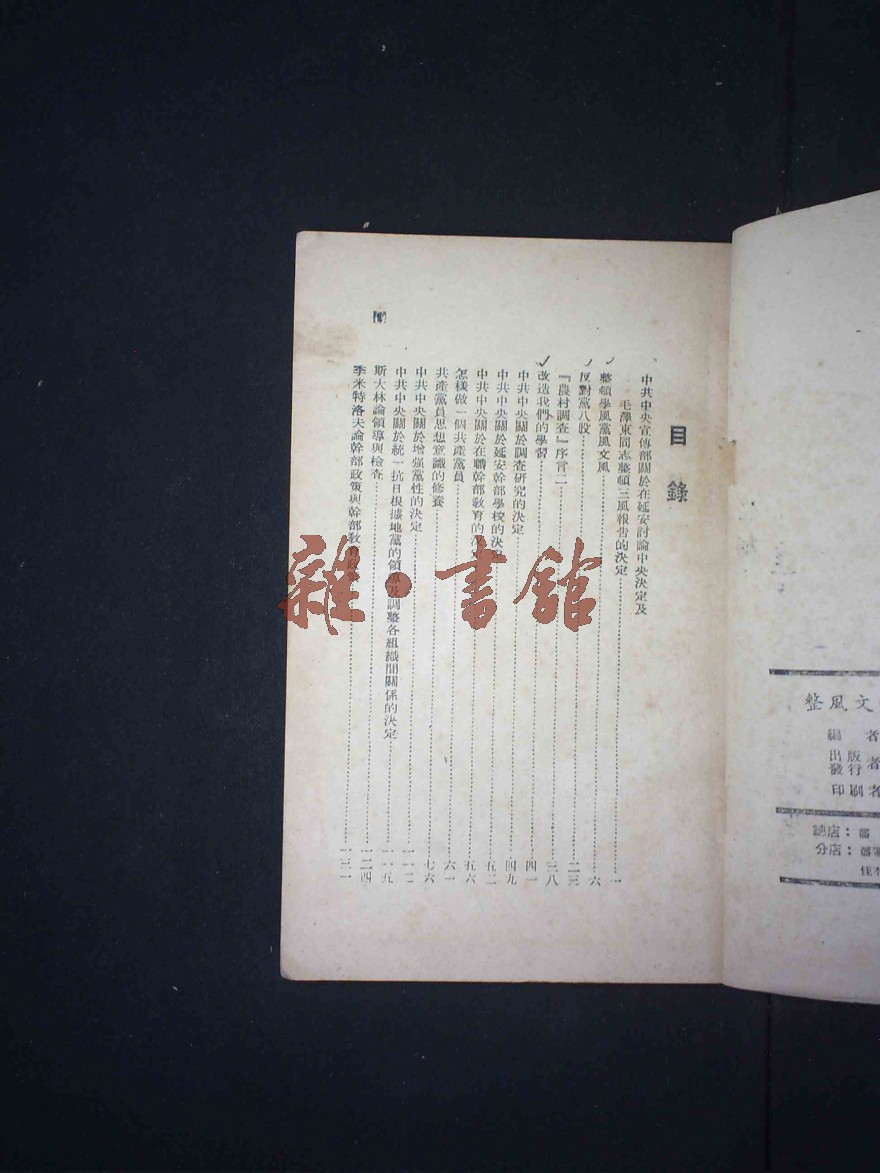 目錄
中共中央宣傳部關於在延安討論中央決定及
毛澤東同志整頓三風報告的決定……一
整頓學風黨風文風……六
反對黨八股……二三
『農村調查』序言二……三八
改造我們的學習……四一
中共中央關於調查研究的決定……四九
中共中央關於延安幹部學校的決定……五二
中共中央關於在職幹部教育的決定……五六
怎樣做一個共產黨員……六一
共產黨員思想意識的修養……七六
中共中央關於增强黨性的決定
中共中央關於統一抗日根據地黨的領導及調整各組織間關係的決定……一一五
斯大林論領導與檢查……一二四
季米特洛夫論幹部政策與幹部教育政策……一三一
雜·書舘
整風文
編者
出版者
發行
印刷者
總店：
分店：
佳木